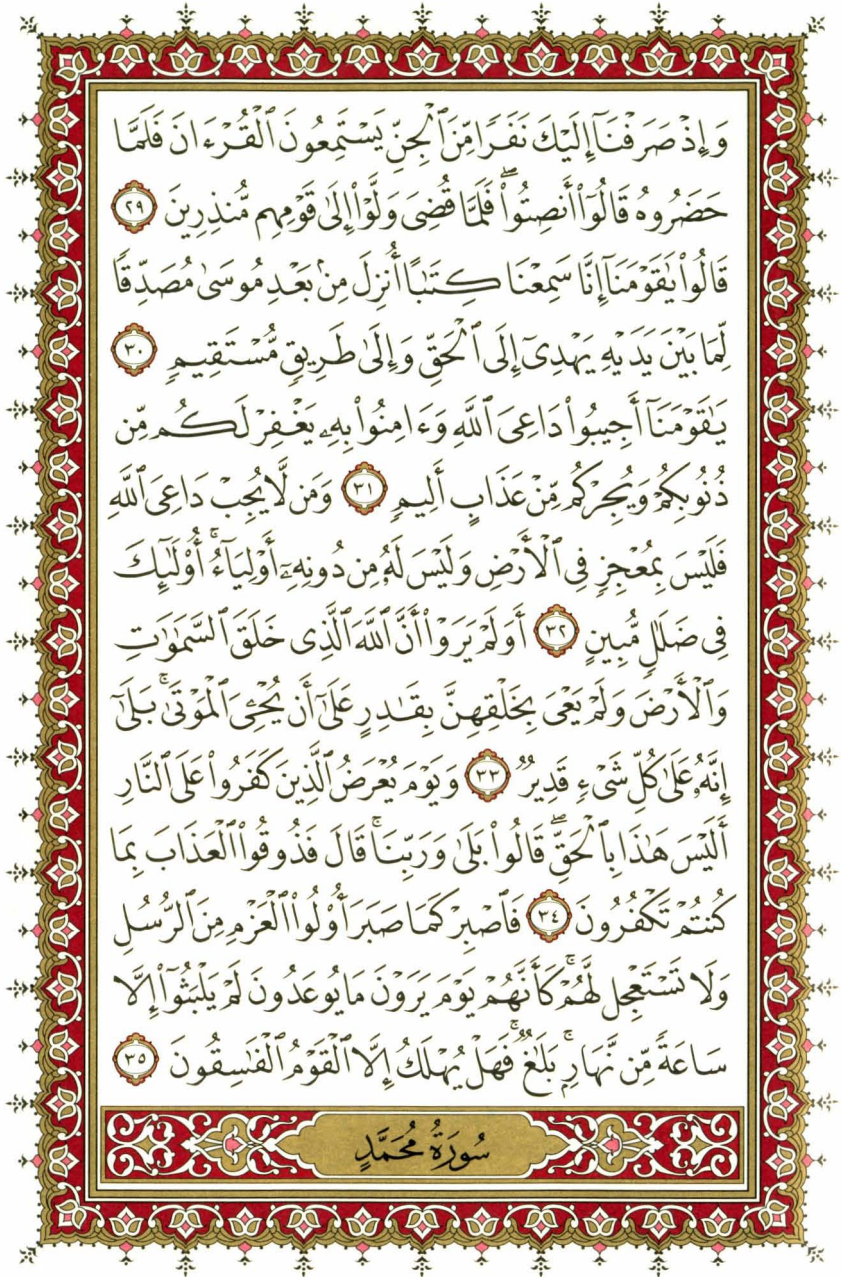 وَإِذْ صَرَفْنَآ إِلَيْكَ نَفَرًا مِّنَ ٱلْجِنِّ يَسْتَمِعُونَ ٱلْقُرْءَانَ فَلَمَّا
حَضَرُوهُ قَالُوٓا۟ أَنصِتُوا۟ ۖ فَلَمَّا قُضِىَ وَلَّوْا۟ إِلَىٰ قَوْمِهِم مُّنذِرِينَ ٢٩
قَالُوا۟ يَٰقَوْمَنَآ إِنَّا سَمِعْنَا كِتَٰبًا أُنزِلَ مِنۢ بَعْدِ مُوسَىٰ مُصَدِّقًا
لِّمَا بَيْنَ يَدَيْهِ يَهْدِىٓ إِلَى ٱلْحَقِّ وَإِلَىٰ طَرِيقٍ مُّسْتَقِيمٍ ٣٠
يَٰقَوْمَنَآ أَجِيبُوا۟ دَاعِىَ ٱللَّهِ وَءَامِنُوا۟ بِهِۦ يَغْفِرْ لَكُم مِّن
ذُنُوبِكُمْ وَيُجِرْكُم مِّنْ عَذَابٍ أَلِيمٍ ٣١ وَمَن لَّا يُجِبْ دَاعِىَ ٱللَّهِ
فَلَيْسَ بِمُعْجِزٍ فِى ٱلْأَرْضِ وَلَيْسَ لَهُۥ مِن دُونِهِۦٓ أَوْلِيَآءُ ۚ أُو۟لَٰٓئِكَ
فِى ضَلَٰلٍ مُّبِينٍ ٣٢ أَوَلَمْ يَرَوْا۟ أَنَّ ٱللَّهَ ٱلَّذِى خَلَقَ ٱلسَّمَٰوَٰتِ
وَٱلْأَرْضَ وَلَمْ يَعْىَ بِخَلْقِهِنَّ بِقَٰدِرٍ عَلَىٰٓ أَن يُحْـِۧىَ ٱلْمَوْتَىٰ ۚ بَلَىٰٓ
إِنَّهُۥ عَلَىٰ كُلِّ شَىْءٍ قَدِيرٌ ٣٣ وَيَوْمَ يُعْرَضُ ٱلَّذِينَ كَفَرُوا۟ عَلَى ٱلنَّارِ
أَلَيْسَ هَٰذَا بِٱلْحَقِّ ۖ قَالُوا۟ بَلَىٰ وَرَبِّنَا ۚ قَالَ فَذُوقُوا۟ ٱلْعَذَابَ بِمَا
كُنتُمْ تَكْفُرُونَ ٣٤ فَٱصْبِرْ كَمَا صَبَرَ أُو۟لُوا۟ ٱلْعَزْمِ مِنَ ٱلرُّسُلِ
وَلَا تَسْتَعْجِل لَّهُمْ ۚ كَأَنَّهُمْ يَوْمَ يَرَوْنَ مَا يُوعَدُونَ لَمْ يَلْبَثُوٓا۟ إِلَّا
سَاعَةً مِّن نَّهَارٍۭ ۚ بَلَٰغٌ ۚ فَهَلْ يُهْلَكُ إِلَّا ٱلْقَوْمُ ٱلْفَٰسِقُونَ ٣٥
سُورَةُ مُحَمَّدٍ